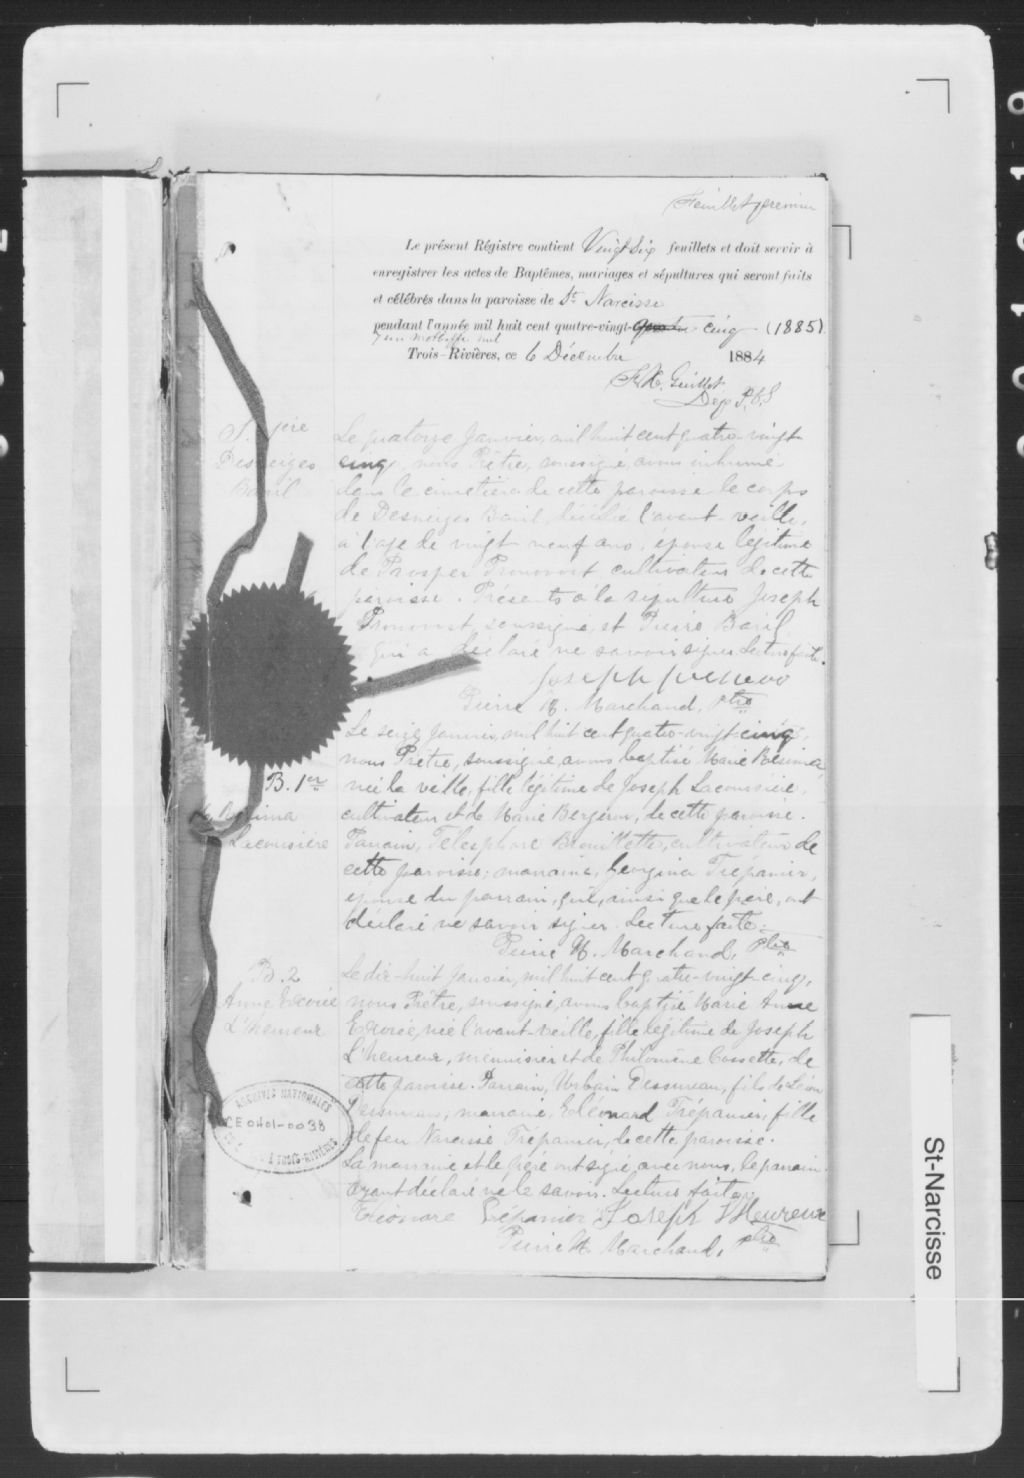 Feuillet premier
Le présent Régistre contient Vingt Six feuillets et doit servir à
enregistrer les actes de Baptêmes, mariages et sépultures qui seront faits
et célébrés dans la paroisse de St Narcisse
pendant l'année mil huit cent quatre-vingt-quatre cinq (1885).
un mot nul
Trois-Rivières, ce 6 Décembre 1884
F. X. Guillet
Dep P.C.S
S. 1ère
Desneiges
Baril
Le quatorze Janvier, mil huit cent quatre-vingt
cinq, nous Prêtre, soussigné, avons inhumé
dans le cimetière de cette paroisse le corps
de Desneiges Baril, décédée l'avant-veille,
à l'age de vingt neuf ans, epouse légitime
de Prosper Pronovost cultivateur de cette
paroisse. Présents à la sépulture Joseph
Pronovost, soussigné, et Pierre Baril
qui a déclaré ne savoir signer. Lecture faite.
Joseph
Pierre H. Marchand, Ptre
B. 1er
M. Résima
Lacoursière
Le seize Janvier, mil huit cent quatre-vingt-cinq,
nous Prêtre, soussigné, avons baptisé Marie Résima
née la veille, fille légitime de Joseph Lacoursière,
cultivateur et de Marie Bergeron, de cette paroisse.
Parrain, Telesphore Brouillette, cultivateur de
cette paroisse; marraine, Georgina Trépanier,
épouse du parrain, qui, ainsi que le père, ont
déclaré ne savoir signer. Lecture faite.
Pierre H. Marchand, Ptre
B. 2
Anne Exorée
L'heureux
Le dix-huit Janvier, mil huit cent quatre-vingt-cinq,
nous Prêtre, soussigné, avons baptisé Marie Anne
Exorée, née l'avant-veille, fille légitime de Joseph
L'heureux, menuisier et de Philomène Cossette, de
cette paroisse. Parrain, Urbain Dessureau, fils de Léon
Dessureau; marraine, Eléonard Trépanier, fille
de feu Narcisse Trépanier, de cette paroisse.
La marraine et le père ont signé avec nous, le parrain
ayant déclaré ne le savoir. Lecture faite.
Eléonare Trépanier Joseph L'Heureux
Pierre H. Marchand, Ptre
ARCHIVES NATIONALES
CE 0401-0038
TROIS-RIVIÈRES
St-Narcisse